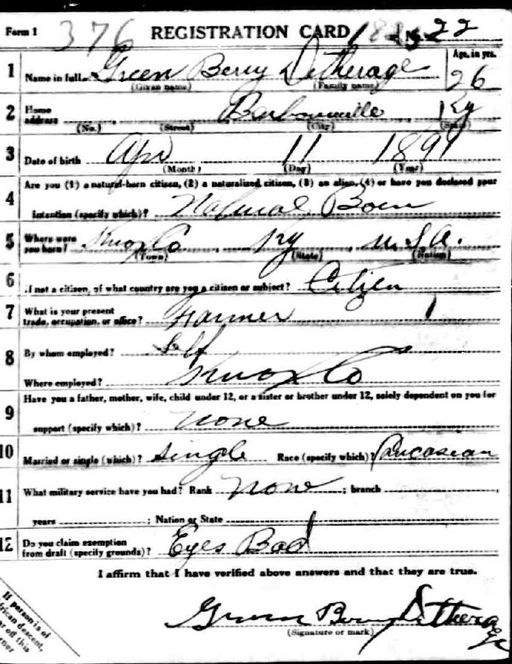 Form 1 376 REGISTRATION CARD 22
1 Name in full Green Berry Detherage Age, in yrs. 26
(Given name) (Family name)
2 Home address Barbourville Ky
(No.) (Street) (City) (State)
3 Date of birth Apr 11 1891
(Month) (Day) (Year)
Are you (1) a natural-born citizen, (2) a naturalized citizen, (3) an alien, (4) or have you declared your
4 intention (specify which)? Natural Born
5 Where were you born? Knox Co Ky U.S.A.
(Town) (State) (Nation)
6 If not a citizen, of what country are you a citizen or subject? Citizen
7 What is your present trade, occupation, or office? Farmer
8 By whom employed? Self
Where employed? Knox Co
9 Have you a father, mother, wife, child under 12, or a sister or brother under 12, solely dependent on you for
support (specify which)? None
10 Married or single (which)? Single Race (specify which)? Caucasian
11 What military service have you had? Rank None ; branch
years ; Nation or State
12 Do you claim exemption from draft (specify grounds)? Eyes Bad
I affirm that I have verified above answers and that they are true.
Green Berry Detherage
(Signature or mark)
If person is of
African descent,